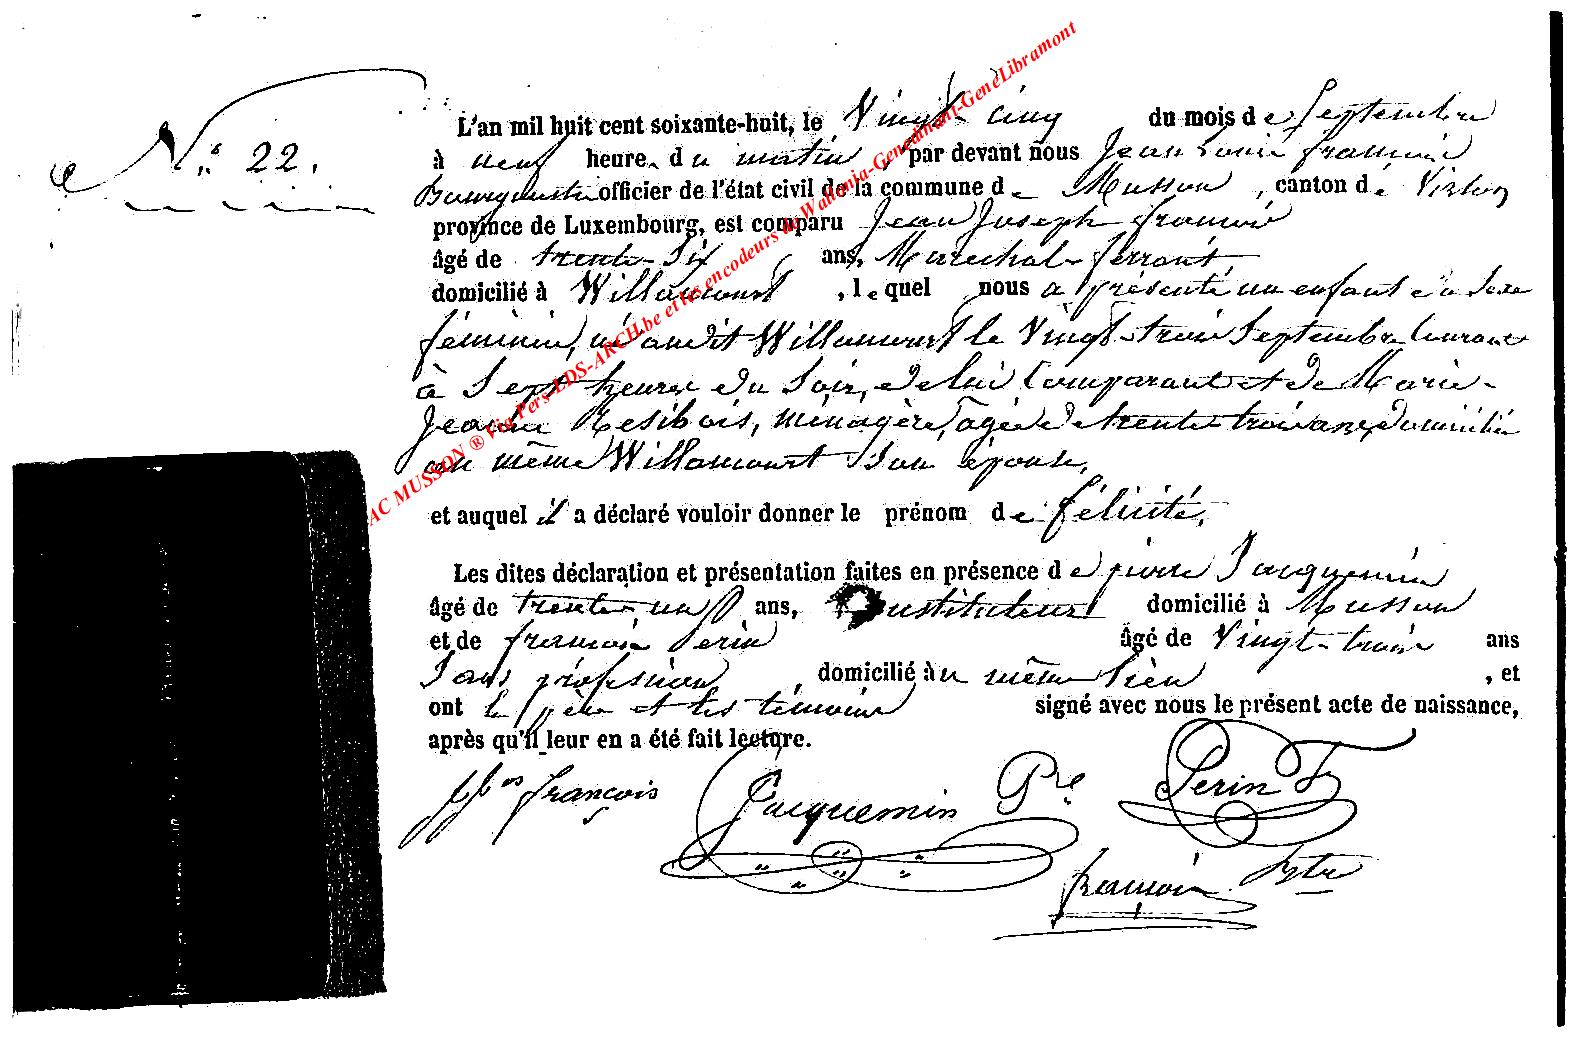 N.° 22.
L'an mil huit cent soixante-huit, le Vingt cinq du mois de Septembre
à neuf heure du matin, par devant nous Jean Louis François
Bourgmestre officier de l'état civil de la commune de Musson, canton de Virton
province de Luxembourg, est comparu Jean Joseph françois
âgé de trente-six ans, Maréchal-ferrant,
domicilié à Willancourt, lequel nous a présenté un enfant du Sexe
féminin, né audit Willancourt le Vingt-trois Septembre Courant
à Sept heures du Soir, de lui Comparant et de Marie-
Jeanne Resibois, ménagère, agée de trente-trois ans, domiciliée
au même Willancourt Son épouse,
et auquel il a déclaré vouloir donner le prénom de félicité,
Les dites déclaration et présentation faites en présence de pierre Jacquemin
âgé de trente-un ans, instituteur domicilié à Musson
et de françois Perin âgé de Vingt-trois ans
Sans profession, domicilié au même lieu, et
ont le père et les témoins signé avec nous le présent acte de naissance,
après qu'il leur en a été fait lecture.
JJ.ʰ françois Jacquemin P.re Perin F
françois
AC MUSSON ® Via Pers-LDS-ARCH.be et les encodeurs de Wallonia-Genedinant-GeneLibramont